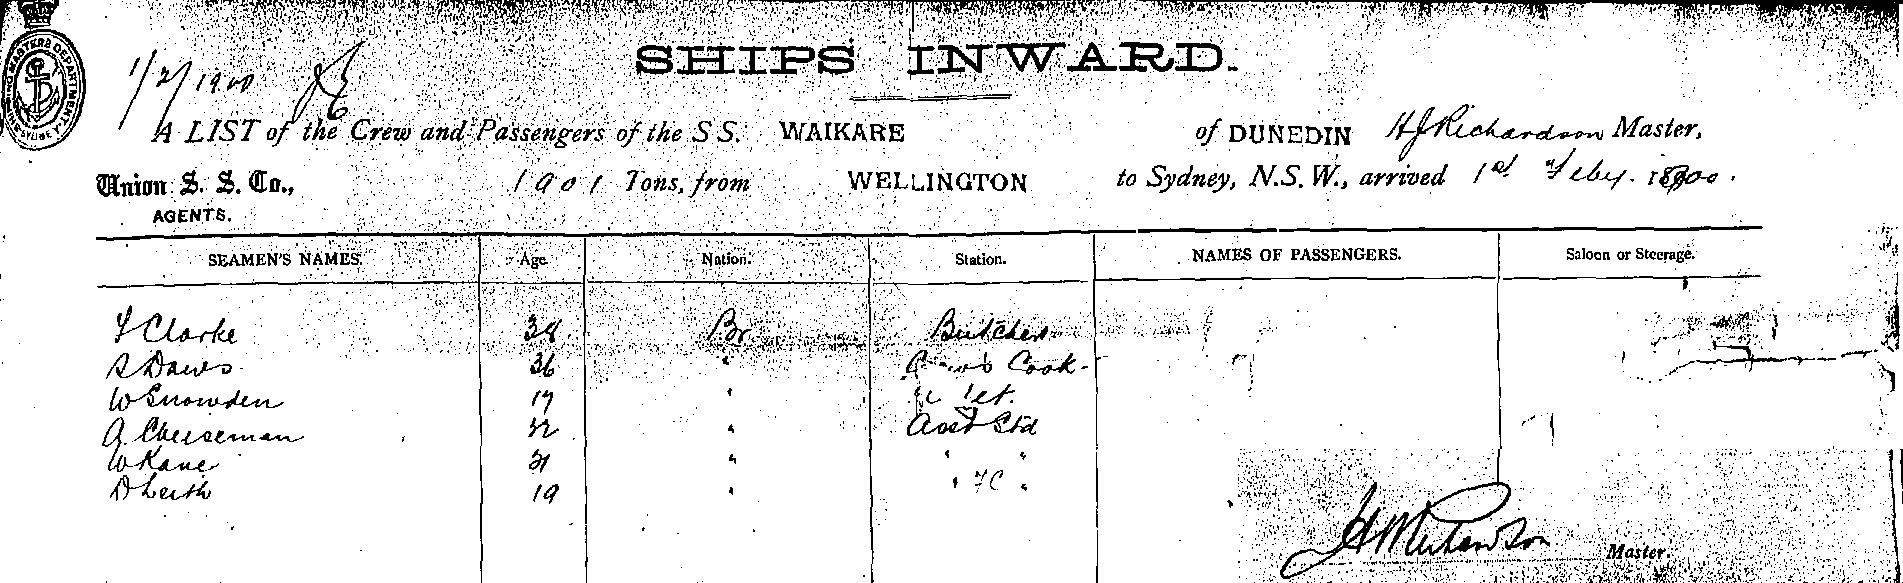 SHIPS INWARD.
1/2/1900
A LIST of the Crew and Passengers of the S S. WAIKARE of DUNEDIN HJRichardson Master,
Union S. S. Co., 1901 Tons, from WELLINGTON to Sydney, N.S.W., arrived 1st Feby. 1900.
AGENTS.
SEAMEN'S NAMES. Age. Nation. Station. NAMES OF PASSENGERS. Saloon or Steerage.
F Clarke 38 Br Butcher
S Daws 36 " Crew's Cook
W Snowden 19 "
A Cheeseman 32 " Asst Std
W Kane 21 " " "
D Leith 19 " " FC "
Master.